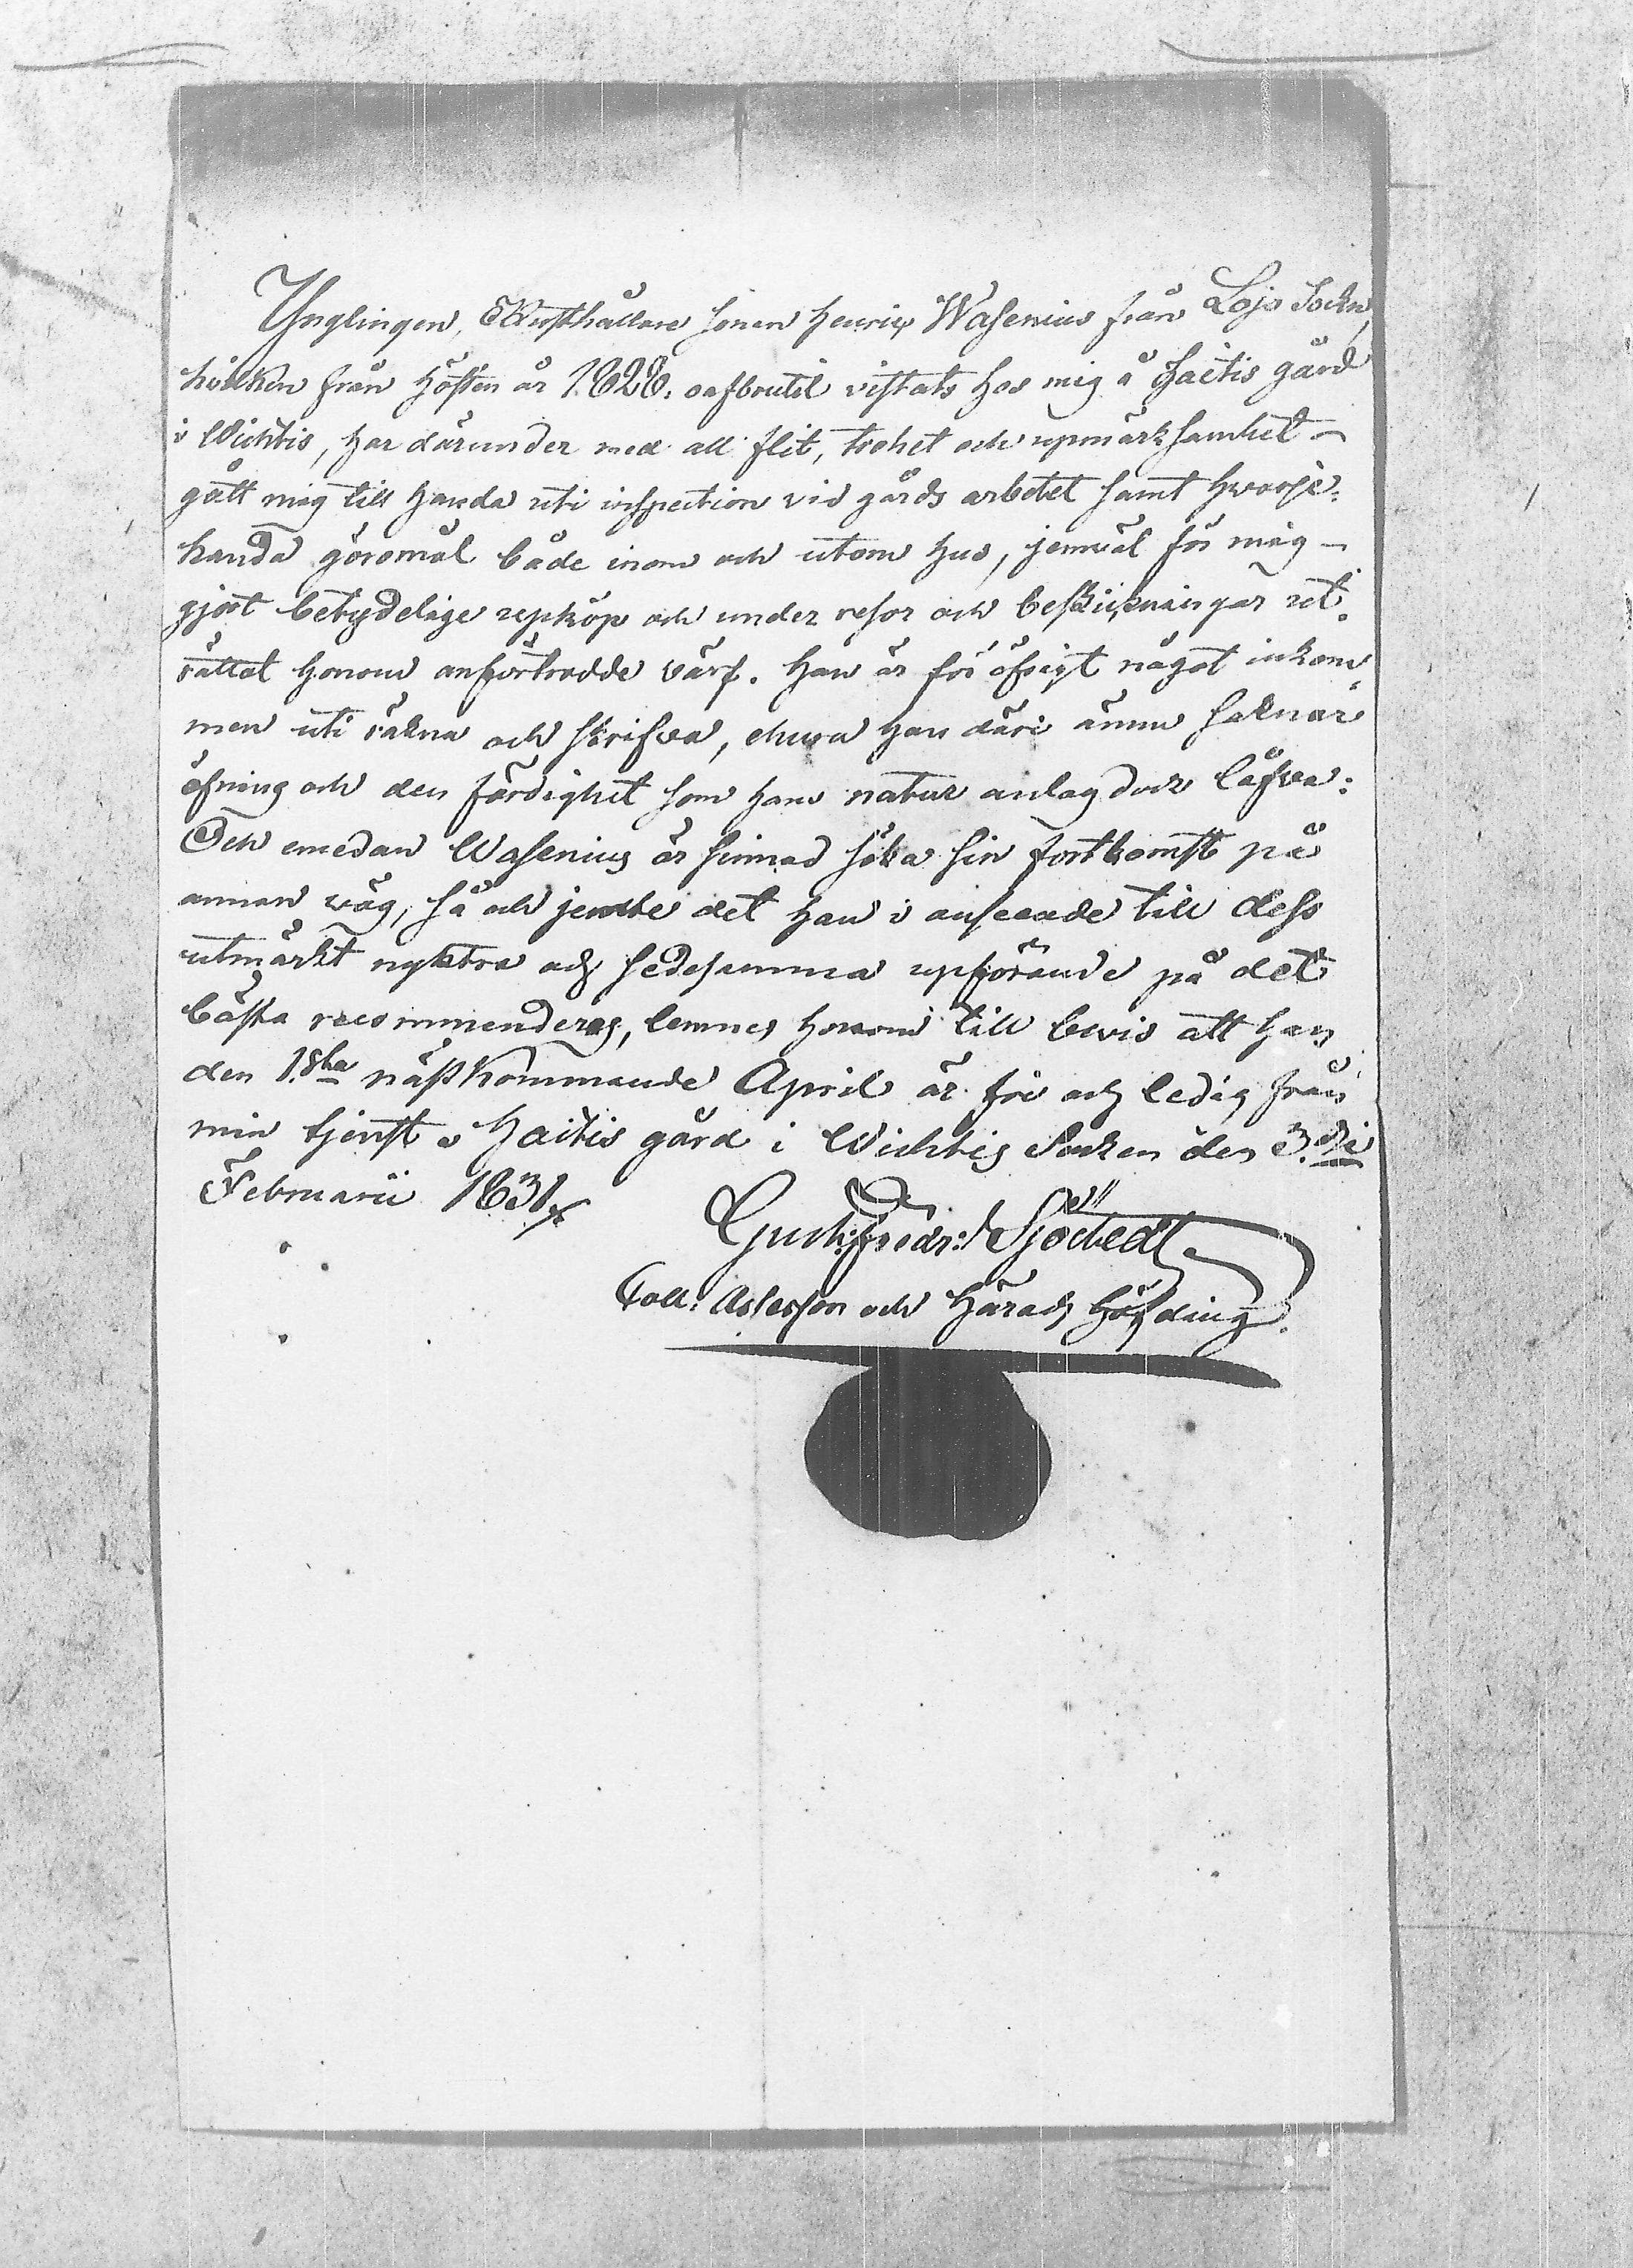 Ynglingen, Rusthållare sonen Henric Wasenius från Lojo Sockn,
hvilken från hösten år 1828. oafbrutit vistats hos mig å Haitis gård
i Wichtis, har därunder med all flit, trohet och upmärksamhet –
gått mig till handa uti inspection vid gårds arbetet samt hvarje-
handa göromål både inom och utom hus, jemväl för mig –
gjort betydelige upköp och under resor och beskickningar ut-
rättat honom anförtrodde värf. Han är för öfrigt något inkom-
men uti räkna och skrifva, ehuru han däri ännu saknar
öfning och den färdighet som hans natur anlag dock låfva:
Och emedan Wasenius är sinnad söka sin fortkomst på
annan väg, så och jemte det han i anseende till dess
utmärkt nyktra och sedesamma upförande på det
bästa recommenderas, lemnes honom till bevis att han
den 1sta nästkommande April är fri och ledig från
min tjenst å Haitis gård i Wichtis Socken den 3dje
Februarii 1831.
Gust: Fredr: Sjöstedt
Coll: Assessor och Härads Höfding.